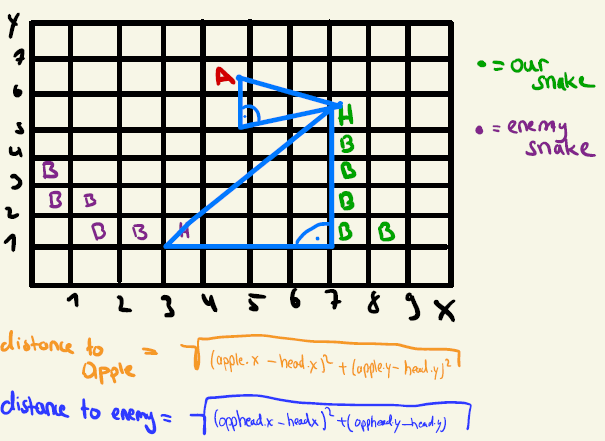 Y
7
6
5
4
3
2
1
A
H
B
B
B
B B
B
B B
B B H
1 2 3 4 5 6 7 8 9 X
• = our
snake
• = enemy
snake
distance to
apple = √(apple.x - head.x)² + (apple.y - head.y)²
distance to enemy = √(opphead.x - headx)² + (opphead.y - head.y)